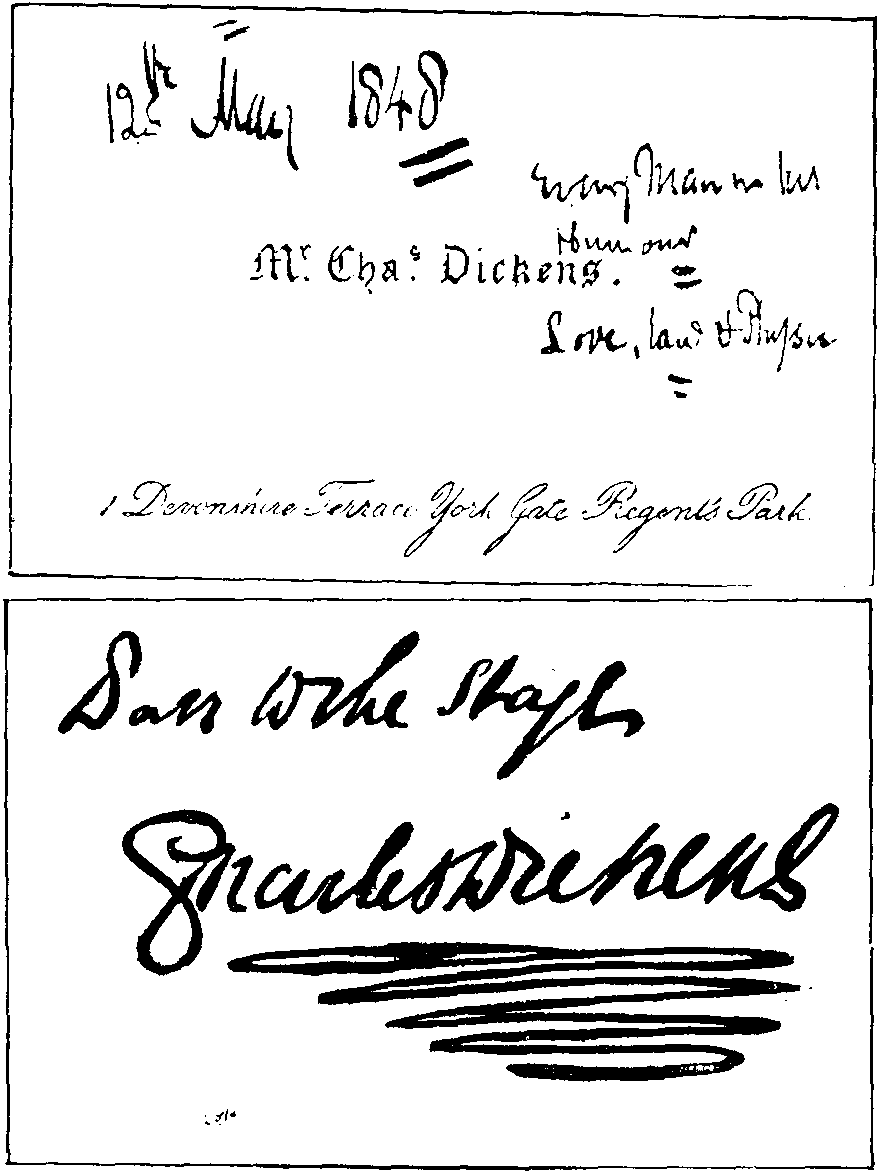 12th May 1848
Every Man in his
Humour
Mr. Chas. Dickens.
Love, Law & Physic
1 Devonshire Terrace York Gate Regent's Park.
Pass to the Stage
Charles Dickens